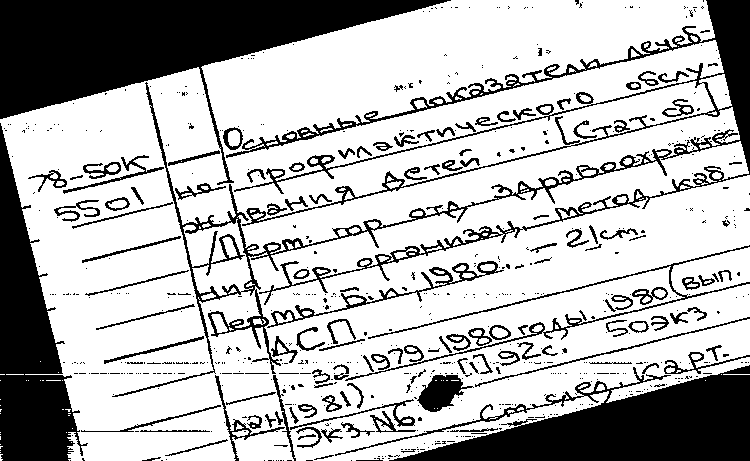 78-50К
5501
Основные показатели лечеб-
но-профилактического обслу-
живания детей ... : [Стат. сб.]
/Перм: гор. отд. здравоохране-
ния, Гор. организац.-метод. каб.-
Пермь: Б.и., 1980. - 21 см.
ДСП.
... за 1979-1980 годы. 1980 (вып.
дан 1981). [1], 92 с. 50 экз.
Экз. N6. См. след. карт.